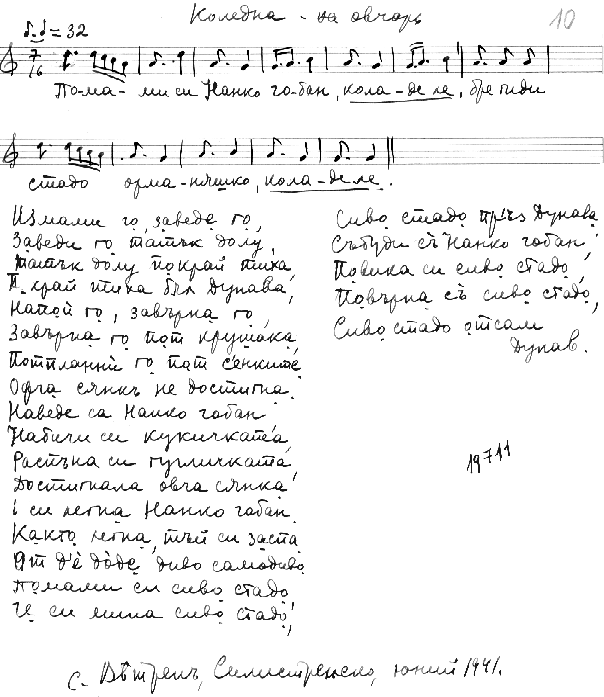 Коледна - на овчарь
10
= 32
7/16
По-ма-ми си Нанко го-бан, кола-де ле, бре гиди
стадо орма-нишко, кола-де ле.
Измами го, заведе го,
Заведи го татък долу,
Татък долу покрай тиха,
П край тиха бъл Дунава,
Напой го, завърна го,
Завърна го пот крушака,
Потпланни го пот сенките
Офча сянкъ не достигна.
Наведе са Нанко гобан
Набичи си кукичката,
Растъна си гугличката,
Достигнала овча сянка
I си легна Нанко гобан.
Както легна, тъй си заспа
От де доде диво самодиво
Помами си сиво стадо
Че си мина сиво стадо,
Сиво стадо през Дунава
Събуди съ Нанко гобан,
Повика си сиво стадо,
Повърна съ сиво стадо,
Сиво стадо отсам
Дунав.
19711
с. Вѣтренъ, Силистренско, юний 1941.